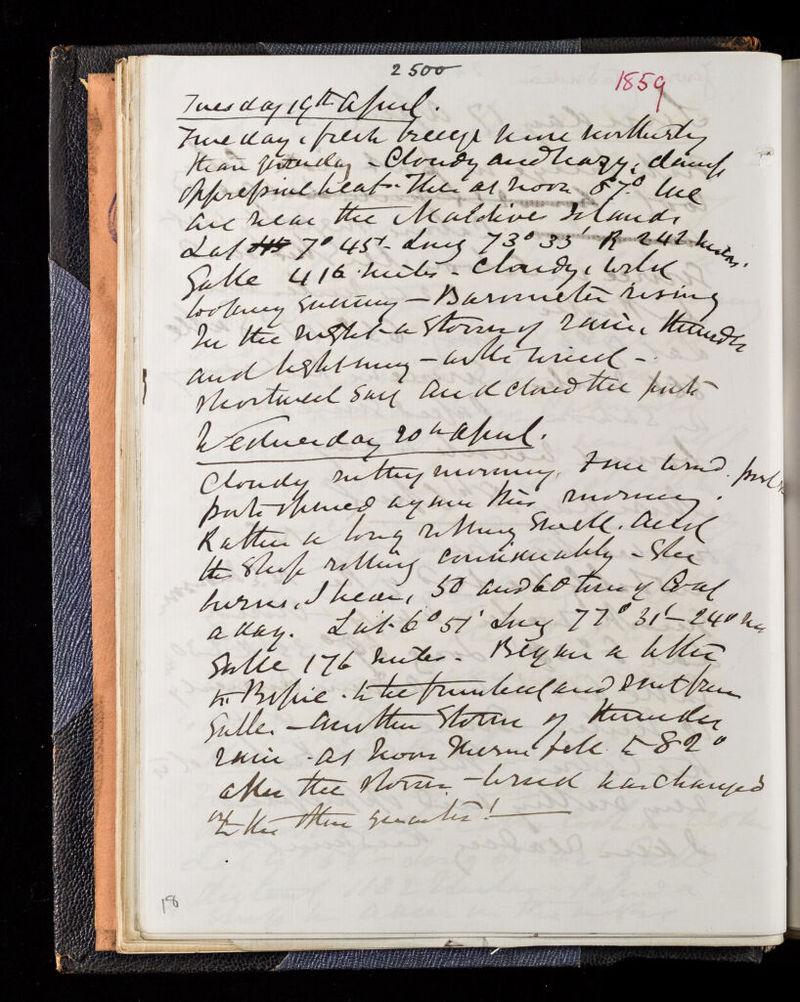 2500
1859
Tuesday 19th April.
Fine day & fresh breeze more northerly
than yesterday - Cloudy and hazy, damp
oppressive heat. Ther at noon 87° We
are near the Maldive Islands
Lat 7° 45' - Long 73° 33' R 242 miles.
Galle 416 miles - Cloudy, & wild
looking evening - Barometer rising
In the night a storm of rain, thunder
and lightning - wind -
shortened sail and closed the ports
Wednesday 20th April.
Cloudy sultry morning. Fine wind.
ports opened again this morning.
Rather a long rolling swell. and
the Ship rolling considerably - She
burns, I hear, 50 and 60 tons of Coal
a day. Lat 6° 51' Long 77° 31' - 240
Galle 176 miles. Began a letter
to be finished and sent from
Galle. - Another storm of thunder
rain - at noon Therm fell to 82°
after the storm - wind has changed
to the other quarter!
18